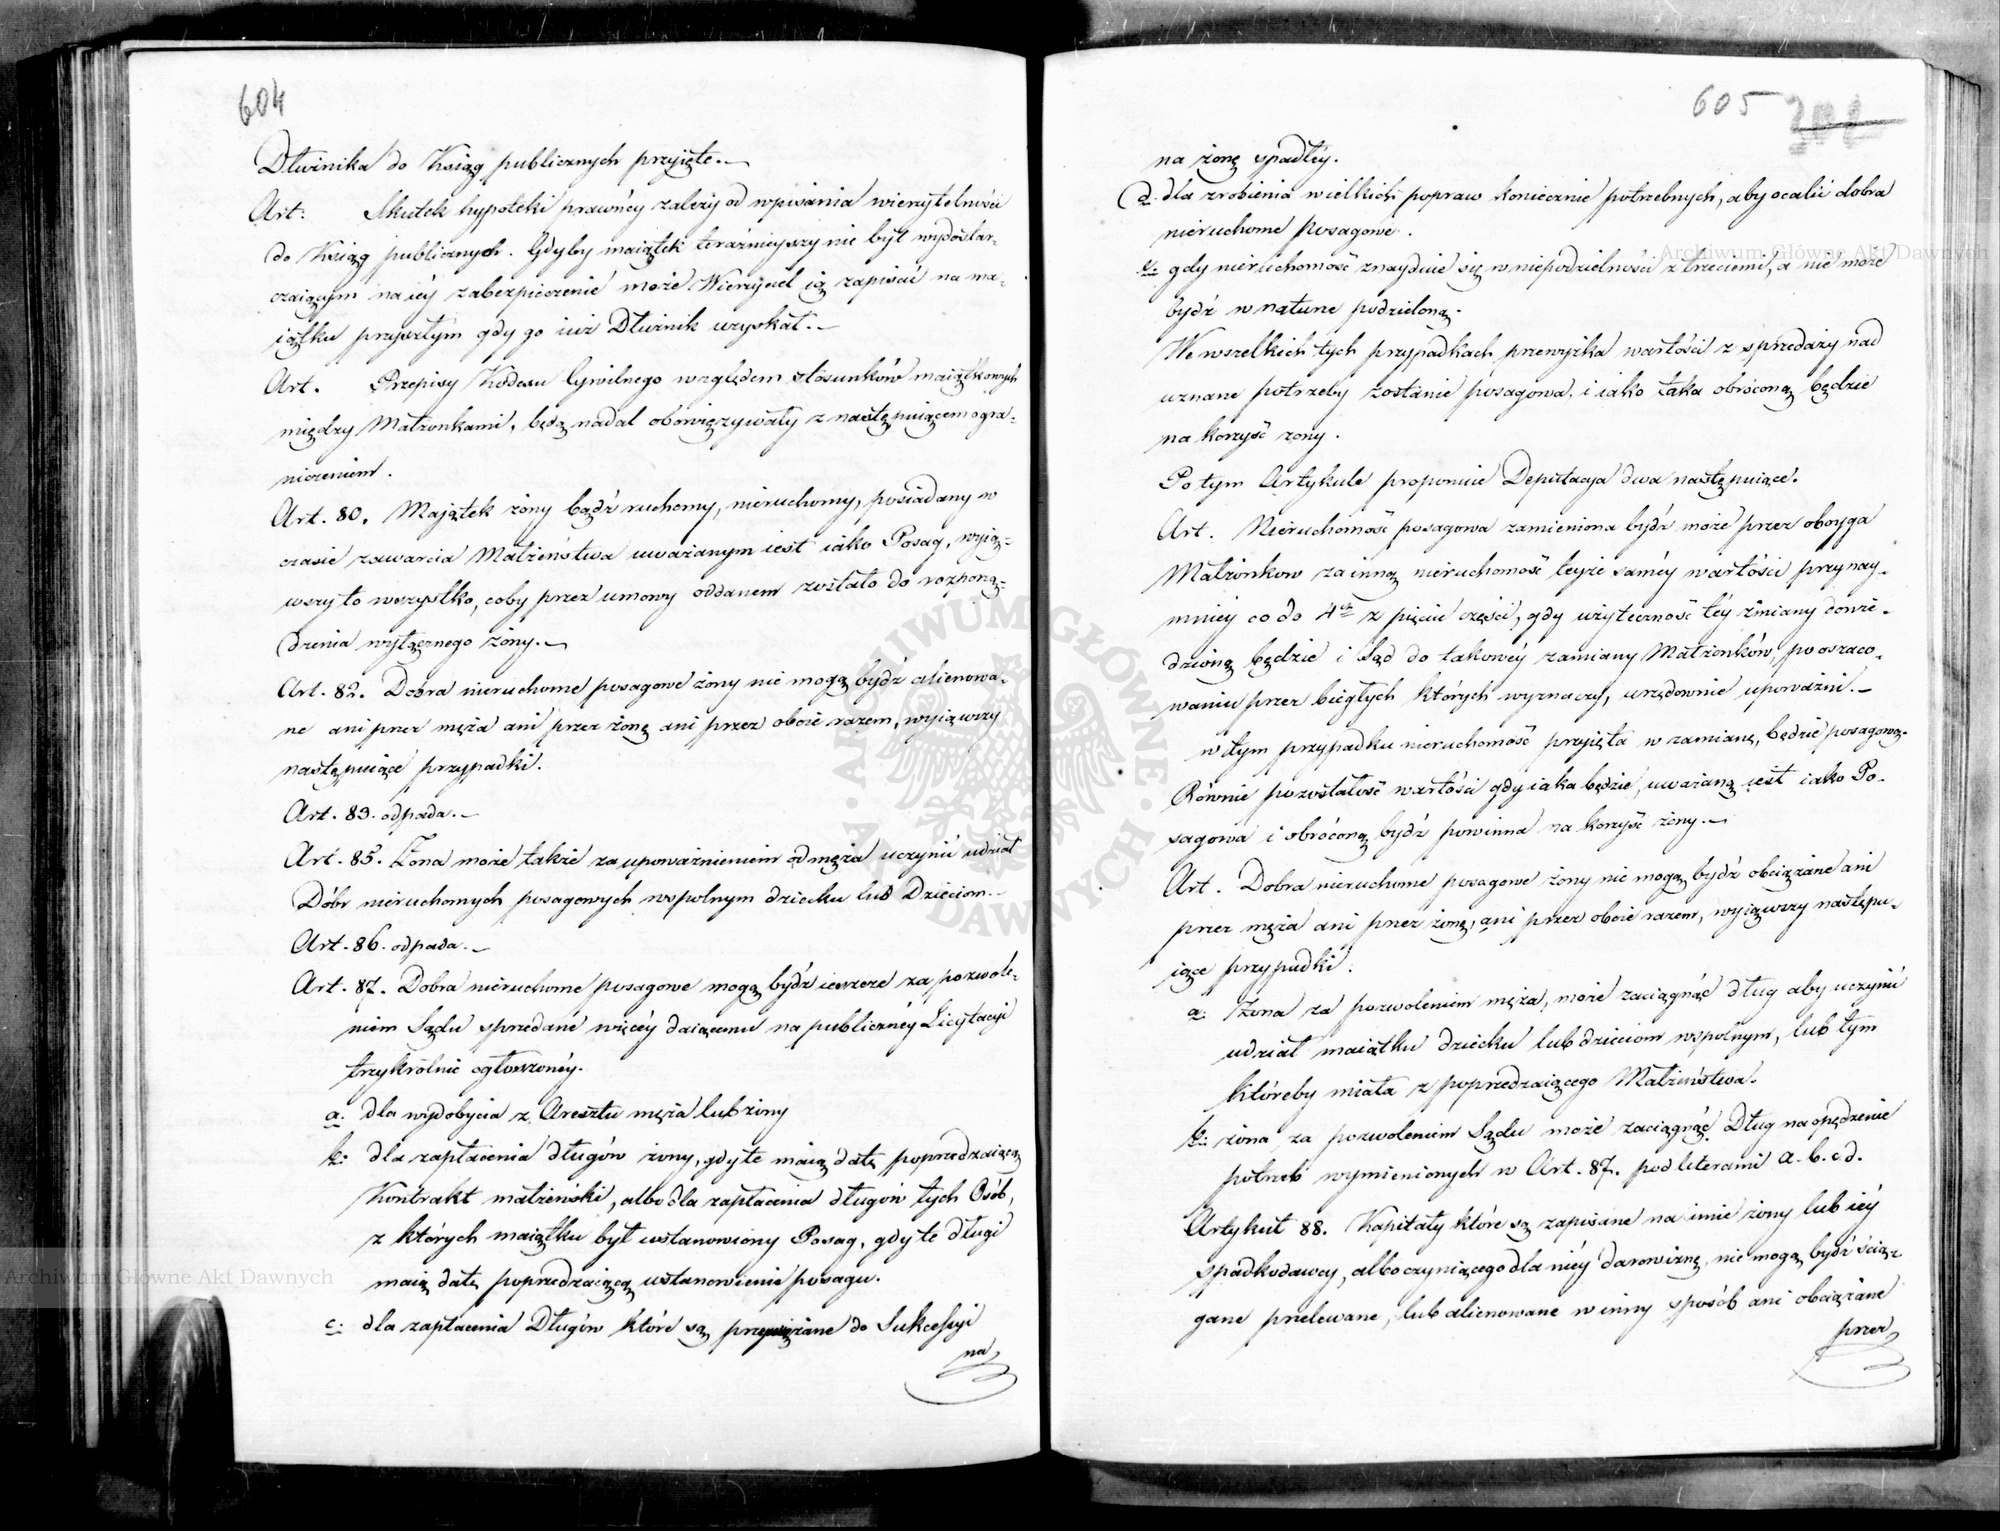 604
Dłużnika do Ksiąg publicznych przyięte.
Art: Skutek hypoteki prawnéy zależy od wpisania wierzytelności
do Ksiąg publicznych. Gdyby maiątek teraźnieyszy nie był wydostar-
czaiącym na iéy zabezpieczenie może Wierzyciel ią zapisać na ma-
iątku przyszłym gdy go iuż Dłużnik uzyskał.
Art. Przepisy Kodexu Cywilnego względem stosunków maiątkowych
między Małżonkami, będą nadal obowięzywały z następuiącem ogra-
niczeniem.
Art. 80. Majątek żony bądź ruchomy, nieruchomy, posiadany w
czasie zawarcia Małżeństwa uważanym iest iako Posag, wyią-
wszy to wszystko, coby przez umowy oddanem zostało do rozporzą-
dzenia wyłącznego żony.
Art. 82. Dobra nieruchome posagowe żony nie mogą bydź alienowa-
ne ani przez męża ani przez żonę ani przez oboie razem, wyiąwszy
następuiące przypadki.
Art. 83. odpada.
Art. 85. Żona może także za upoważnieniem od męża uczynić udział
Dóbr nieruchomych posagowych wspolnym dziecku lub Dzieciom.
Art. 86. odpada.
Art. 87. Dobra nieruchome posagowe mogą bydź ieszcze za pozwole-
niem Sądu sprzedane więcéy daiącemu na publicznéy Licytacyi
trzykrótnie ogłoszonéy.
a. dla wydobycia z Aresztu męża lub żony
b: dla zapłacenia długów żony, gdy te maią datę poprzedzaiącą
Kontrakt małżeński, albo dla zapłacenia długów tych Osób,
z których maiątku był ustanowiony Posag, gdy te długi
maią datę poprzedzaiącą ustanowienie posagu.
c: dla zapłacenia Długów które są przywiązane do Sukcessyi
na
605
na żonę spadłéy.
d. dla zrobienia wielkich popraw koniecznie potrzebnych, aby ocalić dobra
nieruchome posagowe.
e: gdy nieruchomość znayduie się w niepodzielności z trzeciemi, a nie może
bydź w naturze podzieloną.
We wszelkich tych przypadkach przewyżka wartości z sprzedaży nad
uznane potrzeby zostanie posagową, i iako taka obróconą będzie
na korzyść żony.
Po tym Artykule proponuie Deputacya dwa następuiące.
Art. Nieruchomość posagowa zamieniona bydź może przez oboyga
Małżonkow za inną nieruchomość teyże saméy wartości przynay-
mniéy co do 4ch z pięciu części, gdy użyteczność téy zmiany dowie-
dzioną będzie i Sąd do takowéy zamiany Małżonków, po oszaco-
waniu przez biegłych których wyznaczy, urzędownie upoważni.
w tym przypadku nieruchomość przyięta w zamianę, będzie posagową.
Równie pozostałość wartości gdy iaka będzie, uważaną iest iako Po-
sagowa i obróconą bydź powinna na korzyść żony.
Art. Dobra nieruchome posagowe żony nie mogą bydź obciążane ani
przez męża ani przez żonę, ani przez oboie razem, wyiąwszy następu-
iące przypadki.
a: Żona za pozwoleniem męża, może zaciągnąć dług aby uczynić
udział maiątku dziecku lub dzieciom wspolnym, lub tym
któreby miała z poprzedzaiącego Małżeństwa.
b: żona za pozwoleniem Sądu może zaciągnąć Dług na opędzenie
potrzeb wymienionych w Art. 87. pod literami a. b. c d.
Artykuł 88. Kapitały które są zapisane na imie żony lub iéy
spadkodawcy, albo czyniącego dla niéy darowiznę, nie mogą bydź ścią-
gane przelewane, lub alienowane w inny sposób ani obciążane
przez
Archiwum Główne Akt Dawnych
Archiwum Główne Akt Dawnych
ARCHIWUM GŁÓWNE AKT DAWNYCH